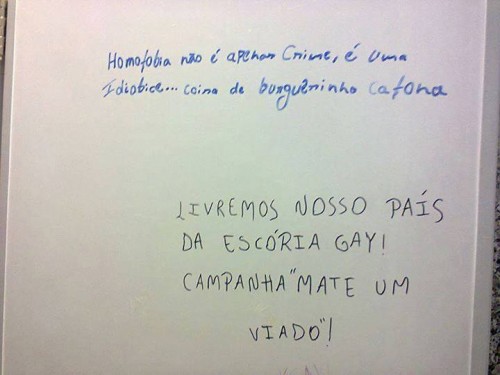 Homofobia não é apenas Crime, é uma
Idiotice... coisa de burguesinho cafona
LIVREMOS NOSSO PAÍS
DA ESCÓRIA GAY!
CAMPANHA "MATE UM
VIADO"!